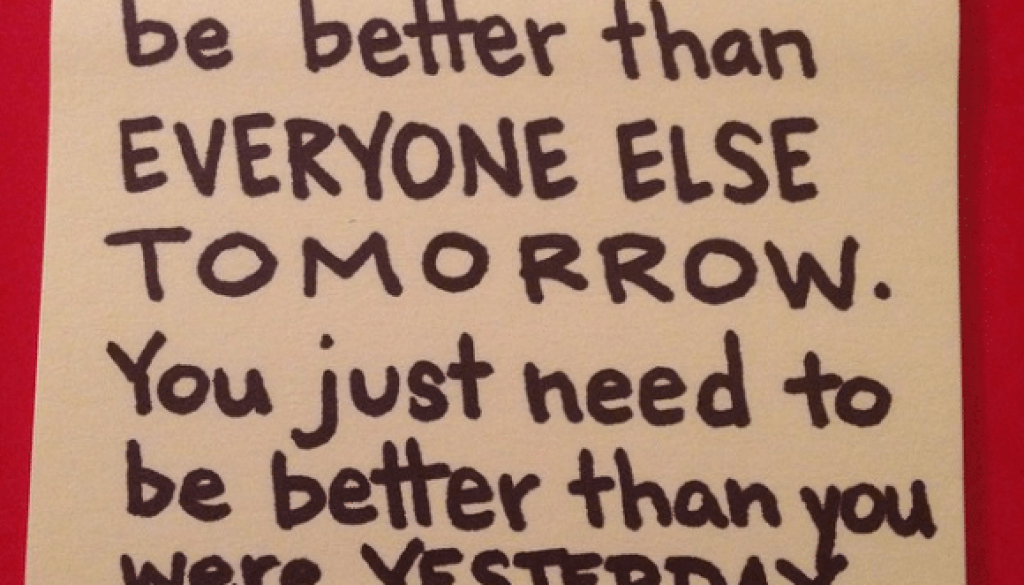 be better than
EVERYONE ELSE
TOMORROW.
You just need to
be better than you
were YESTERDAY